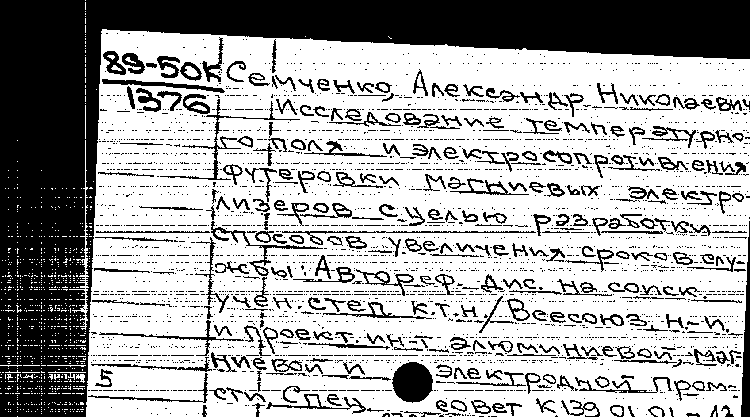 89-50к
1376
Семченко, Александр Николаевич
Исследование температурно-
го поля и электросопротивления
футеровки магниевых электро-
лизеров с целью разработки
способов увеличения сроков слу-
жбы: Автореф. дис. на соиск.
учен. степ. к.т.н./ Всесоюз. н.-и.
и проект. ин-т алюминиевой, маг-
ниевой и электродной пром-
5
сти, Спец. совет К139.01.01